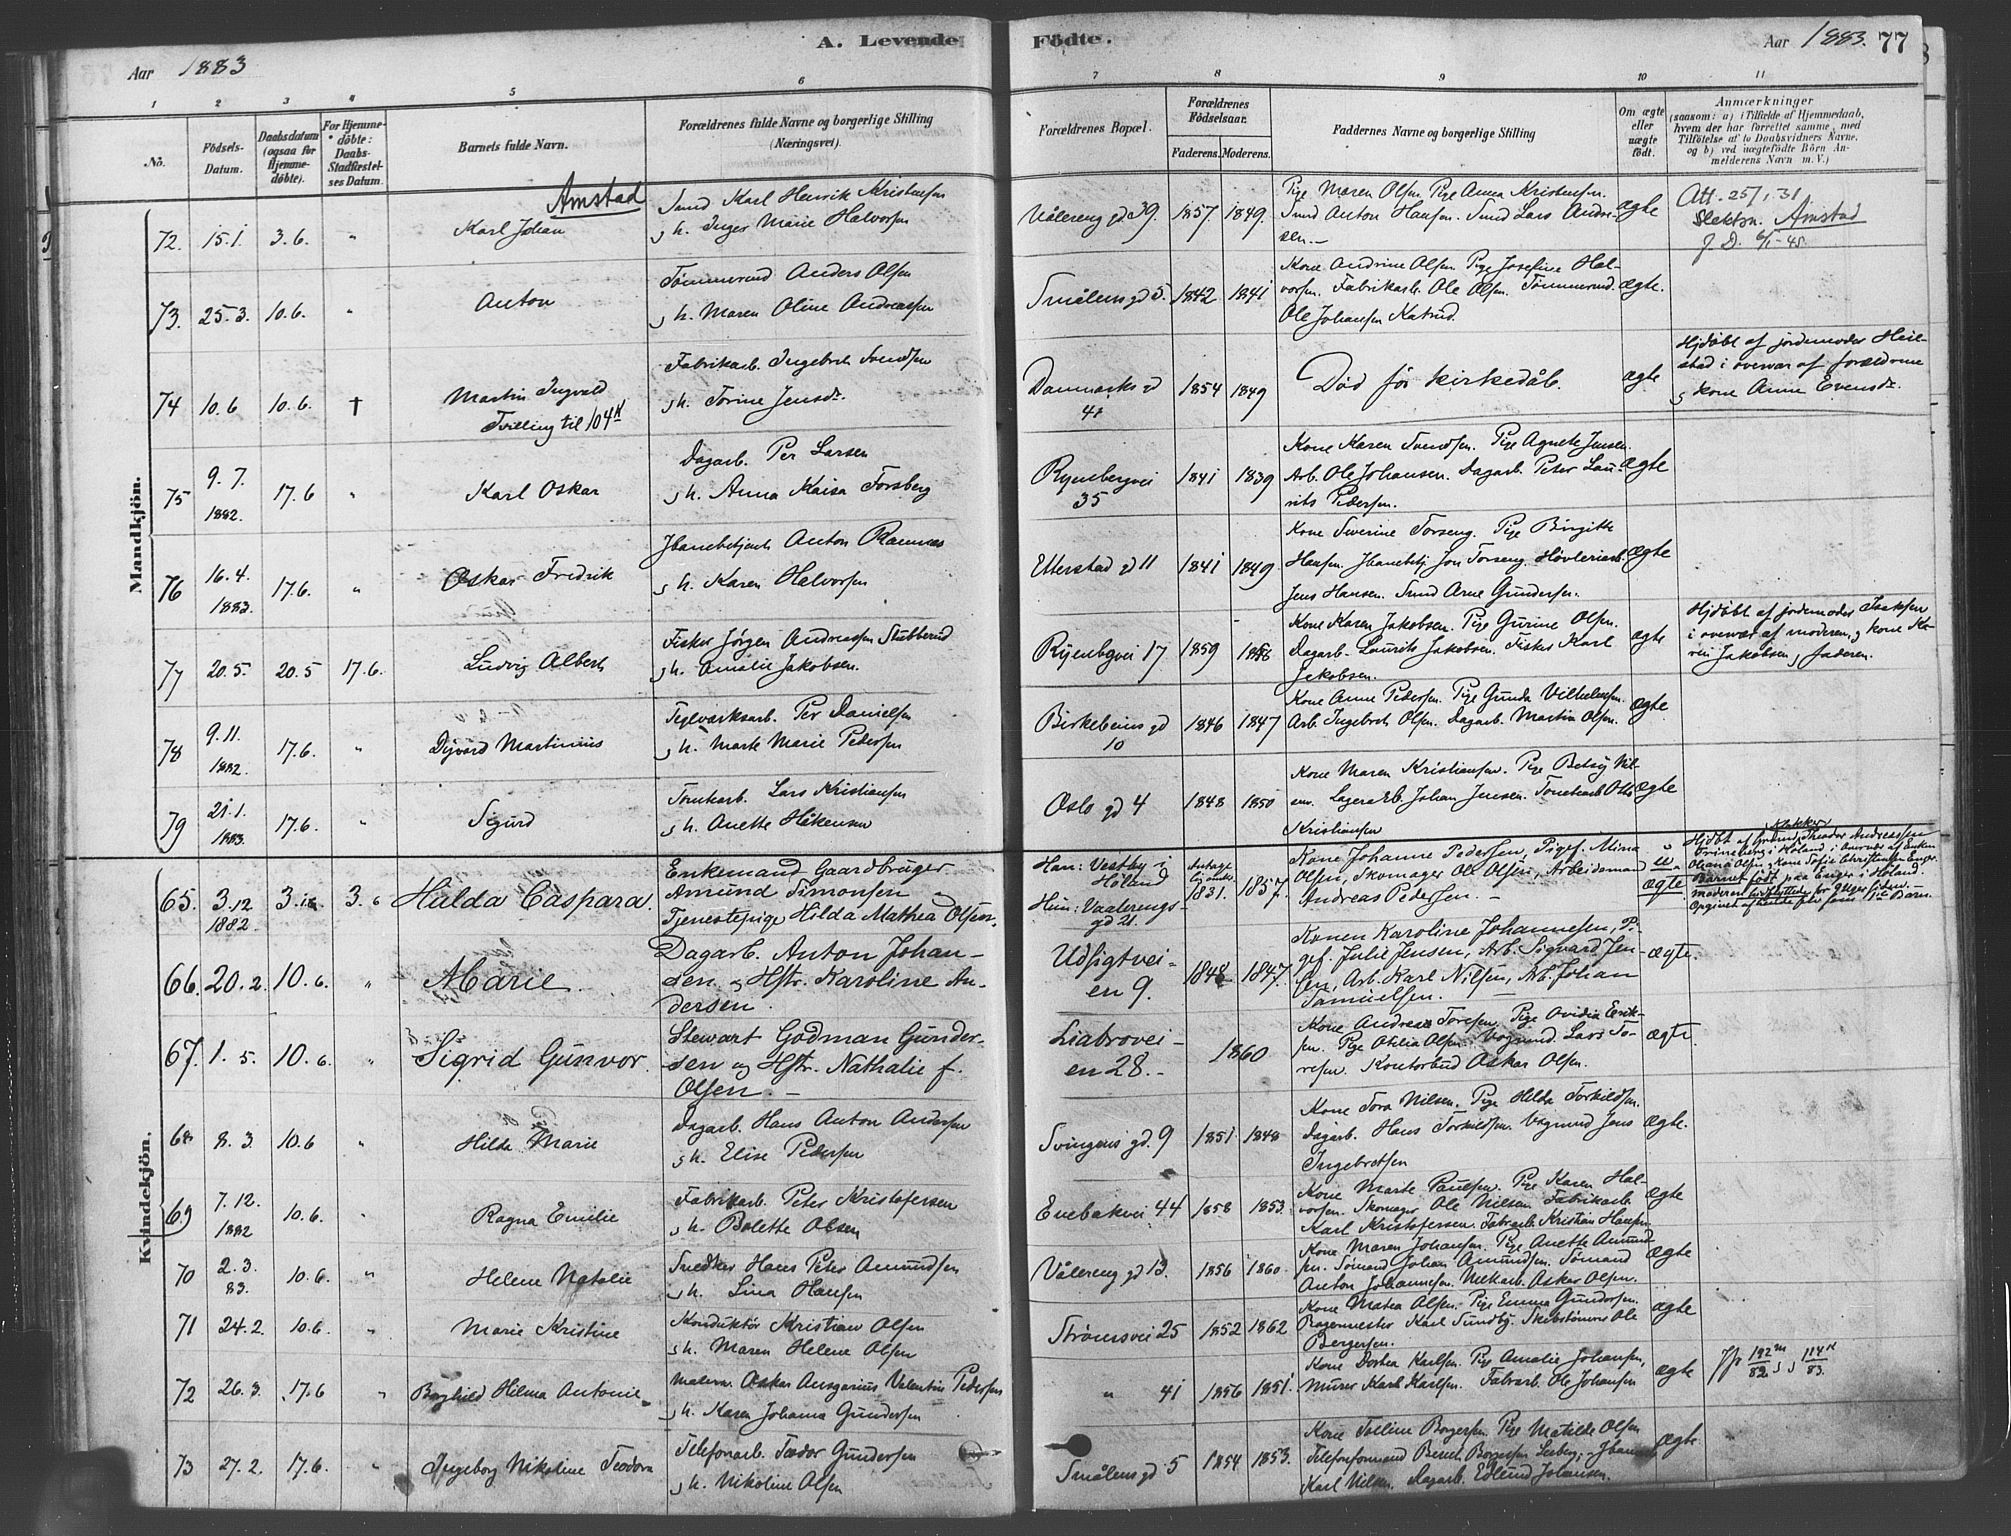 A. Levende Födte.
Aar 1883
Aar 1883. 77
1 2 3 4 5 6 7 8 9 10 11
No.
Födsels-Datum.
Daabsdatum (ogsaa for Hjemme-döbte).
For Hjemme-döbte: Daabs-Stadfæstel-ses Datum.
Barnets fulde Navn.
Forældrenes fulde Navne og borgerlige Stilling (Næringsvei).
Forældrenes Bopæl.
Forældrenes Födselsaar.
Faderens. Moderens.
Faddernes Navne og borgerlige Stilling
Om ægte eller uægte födt.
Anmærkninger
(saasom: a) i Tilfælde af Hjemmedaab, hvem der har forrettet samme, med Tilföielse af to Daabsvidners Navne. og b) ved uægtefödte Börn An-melderens Navn m. V.)
Mandkjön.
72. 15.1. 3.6. " Karl Johan Amstad
Smed Karl Henrik Kristensen
og h. Inger Marie Halvorsen
Vålereng gd 39. 1857 1849.
Pige Maren Olsen. Pige Anna Kristensen.
Smed Anton Hansen. Smed Lars Andre-
sen.
ægte
Att. 25/1 31
Amstad
73. 25.3. 10.6. " Anton
Tømmermd Anders Olsen
og h. Maren Oline Andreassen
Smålens gd 5. 1842 1841
Kone Andrine Olsen. Pige Josefine Hal-
vorsen. Fabrikarb. Ole Olsen. Tømmermd.
Ole Johansen Katrud.
ægte.
74 10.6 10.6. † Martin Ingvald
Tvilling til 104 K
Fabrikarb. Ingebret Svendsen
og h. Torine Jensdr.
Danmarks gd 41 1854 1849
Död för kirkedåb.
ægte
Hjdöbt af jordemoder Heil-
stad i overvær af forældrene
og kone Anne Evensdr.
75 9.7. 1882. 17.6 " Karl Oskar
Dagarb. Per Larsen
og h. Anna Kaisa Forsberg
Ryenbergvei 35 1841 1839
Kone Karen Svendsen. Pige Agnete Jensen.
Arb. Ole Johansen. Dagarb. Peter Lau-
rits Pedersen.
ægte
76 16.4. 1883. 17.6. " Oskar Fredrik
Jbanebetjent Anton Ramnæs
og h. Karen Halvorsen
Etterstad gd 11 1841 1849
Kone Severine Torseng. Pige Birgitte
Hansen. Jbanebtj. Jon Torseng. Høvleriarb.
Jens Hansen. Smed Arne Gundersen.
ægte
77 20.5. 20.5 17.6. Ludvig Albert
Fisker Jørgen Andreassen Stubberud
og h. Amalie Jakobsen.
Ryenbgvei 17 1859 1858
Kone Karen Jakobsen. Pige Gurine Olsen.
Dagarb. Laurits Jakobsen. Fisker Karl
Jakobsen.
ægte
Hjdöbt af jordemoder Isaksen
i overvær af moderen, og kone Ka-
ren Jakobsen, faderen.
78 9.11. 1882. 17.6. " Martinius
Teglværksarb. Per Danielsen
og h. Marte Marie Pedersen
Birkebeins gd 10 1846 1847
Kone Anne Pedersen. Pige Gunda Vilhelmsen.
Arb. Ingebret Olsen. Dagarb. Martin Olsen.
ægte.
79 21.1. 1883. 17.6. " Sigurd
Tomtearb. Lars Kristiansen
og h. Anette Håkensen
Oslo gd 4 1848 1850
Kone Maren Kristiansen. Pige Betsy Nil-
sen. Lagerarb. Johan Jensen. Tomtearb Otto
Kristiansen
ægte
Kvindekjön.
65. 3.12 1882. 3. 3.6 Hilda Caspara.
Enkemand Gaardbruger
Amund Simonsen
Tjenestepige Hilda Mathea Olsen.
Han: Vestby i Höland
Hun: Vaalerengs-gd 21.
1831. 1857.
Kone Johanne Pedersen, Pige Mina
Olsen, Skomager Ole Olsen, Arbeidsmand
Andreas Pedersen. –
u-
ægte
66. 20.2. 10.6. " Marie.
Dagarb. Anton Johan-
sen og Hstr. Karoline An-
dersen.
Udsigtvei-
en 9. 1848 1847.
Konen Karoline Johannesen, P-
ge Julie Jensen, Arb. Sigvard Jen-
sen, Arb. Karl Nilsen, Arb. Johan
Samuelsen.
ægte.
67. 1.5. 10.6. " Sigrid Gunvor.
Stewart Godman Gunder-
sen og Hstr. Nathalie f.
Olsen. –
Liabrovei-
en 28. 1860
Kone Andrea Toresen. Pige Ovidia Erik-
sen. Pige Otilia Olsen. Vognmd. Lars To-
resen. Kontorbud Oskar Olsen.
ægte.
68 8.3. 10.6 " Hilda Marie
Dagarb. Hans Anton Andersen
og h. Elise Pedersen
Svingens gd. 9 1851. 1848
Kone Tora Nilsen. Pige Hilda Torkildsen.
Dagarb. Hans Torkildsen. Vognmd Jens
Ingebretsen
ægte.
69 7.12. 1882 10.6. Ragna Emilie
Fabrikarb. Peter Kristofersen
og h. Bolette Olsen
Enebakvei 44 1858 1853.
Kone Marte Paulsen. Pige Karen Hal-
vorsen. Skomager Ole Nilsen. Fabrikarb.
Karl Kristofersen. Fabrarb. Kristian Hansen
ægte
70 2.3. 83. 10.6. " Helene Natalie
Snedker Hans Peter Amundsen
og h. Lina Hansen
Vålereng gd 13. 1856 1860.
Kone Maren Johansen. Pige Anette Amund-
sen. Sömand Johan Amundsen. Sömand
Anton Johannesen. Mekarb. Oskar Olsen.
ægte
71 24.2. 10.6. " Marie Kristine
Konduktör Kristian Olsen
og h. Maren Helene Olsen
Strömsvei 25 1852 1862
Kone Matea Olsen. Pige Emma Gundersen.
Bagermester Karl Sundby. Skibstömmer Ole
Bergersen.
ægte
72 26.3. 17.6 " Borghild Hilma Antonie
Malersv. Oskar Ansgarius Valentin Pedersen
og h. Karen Johanna Gundersen
" 41 1856 1851.
Kone Dortea Karlsen. Pige Amalie Johansen,
Murer Karl Karlsen. Fabrarb. Ole Johansen
ægte
Jfr 192 m/82 og 114 K/83.
73 27.2. 17.6. " Ingeborg Nikoline Teodora
Telefonarb. Tedor Gundersen
og h. Nikoline Olsen
Smålens gd 5 1854 1853.
Kone Toline Borgersen. Pige Matilde Olsen
Telefonformand Bernt Borgersen
Karl Nilsen. Dagarb. Edlund Johansen.
ægte